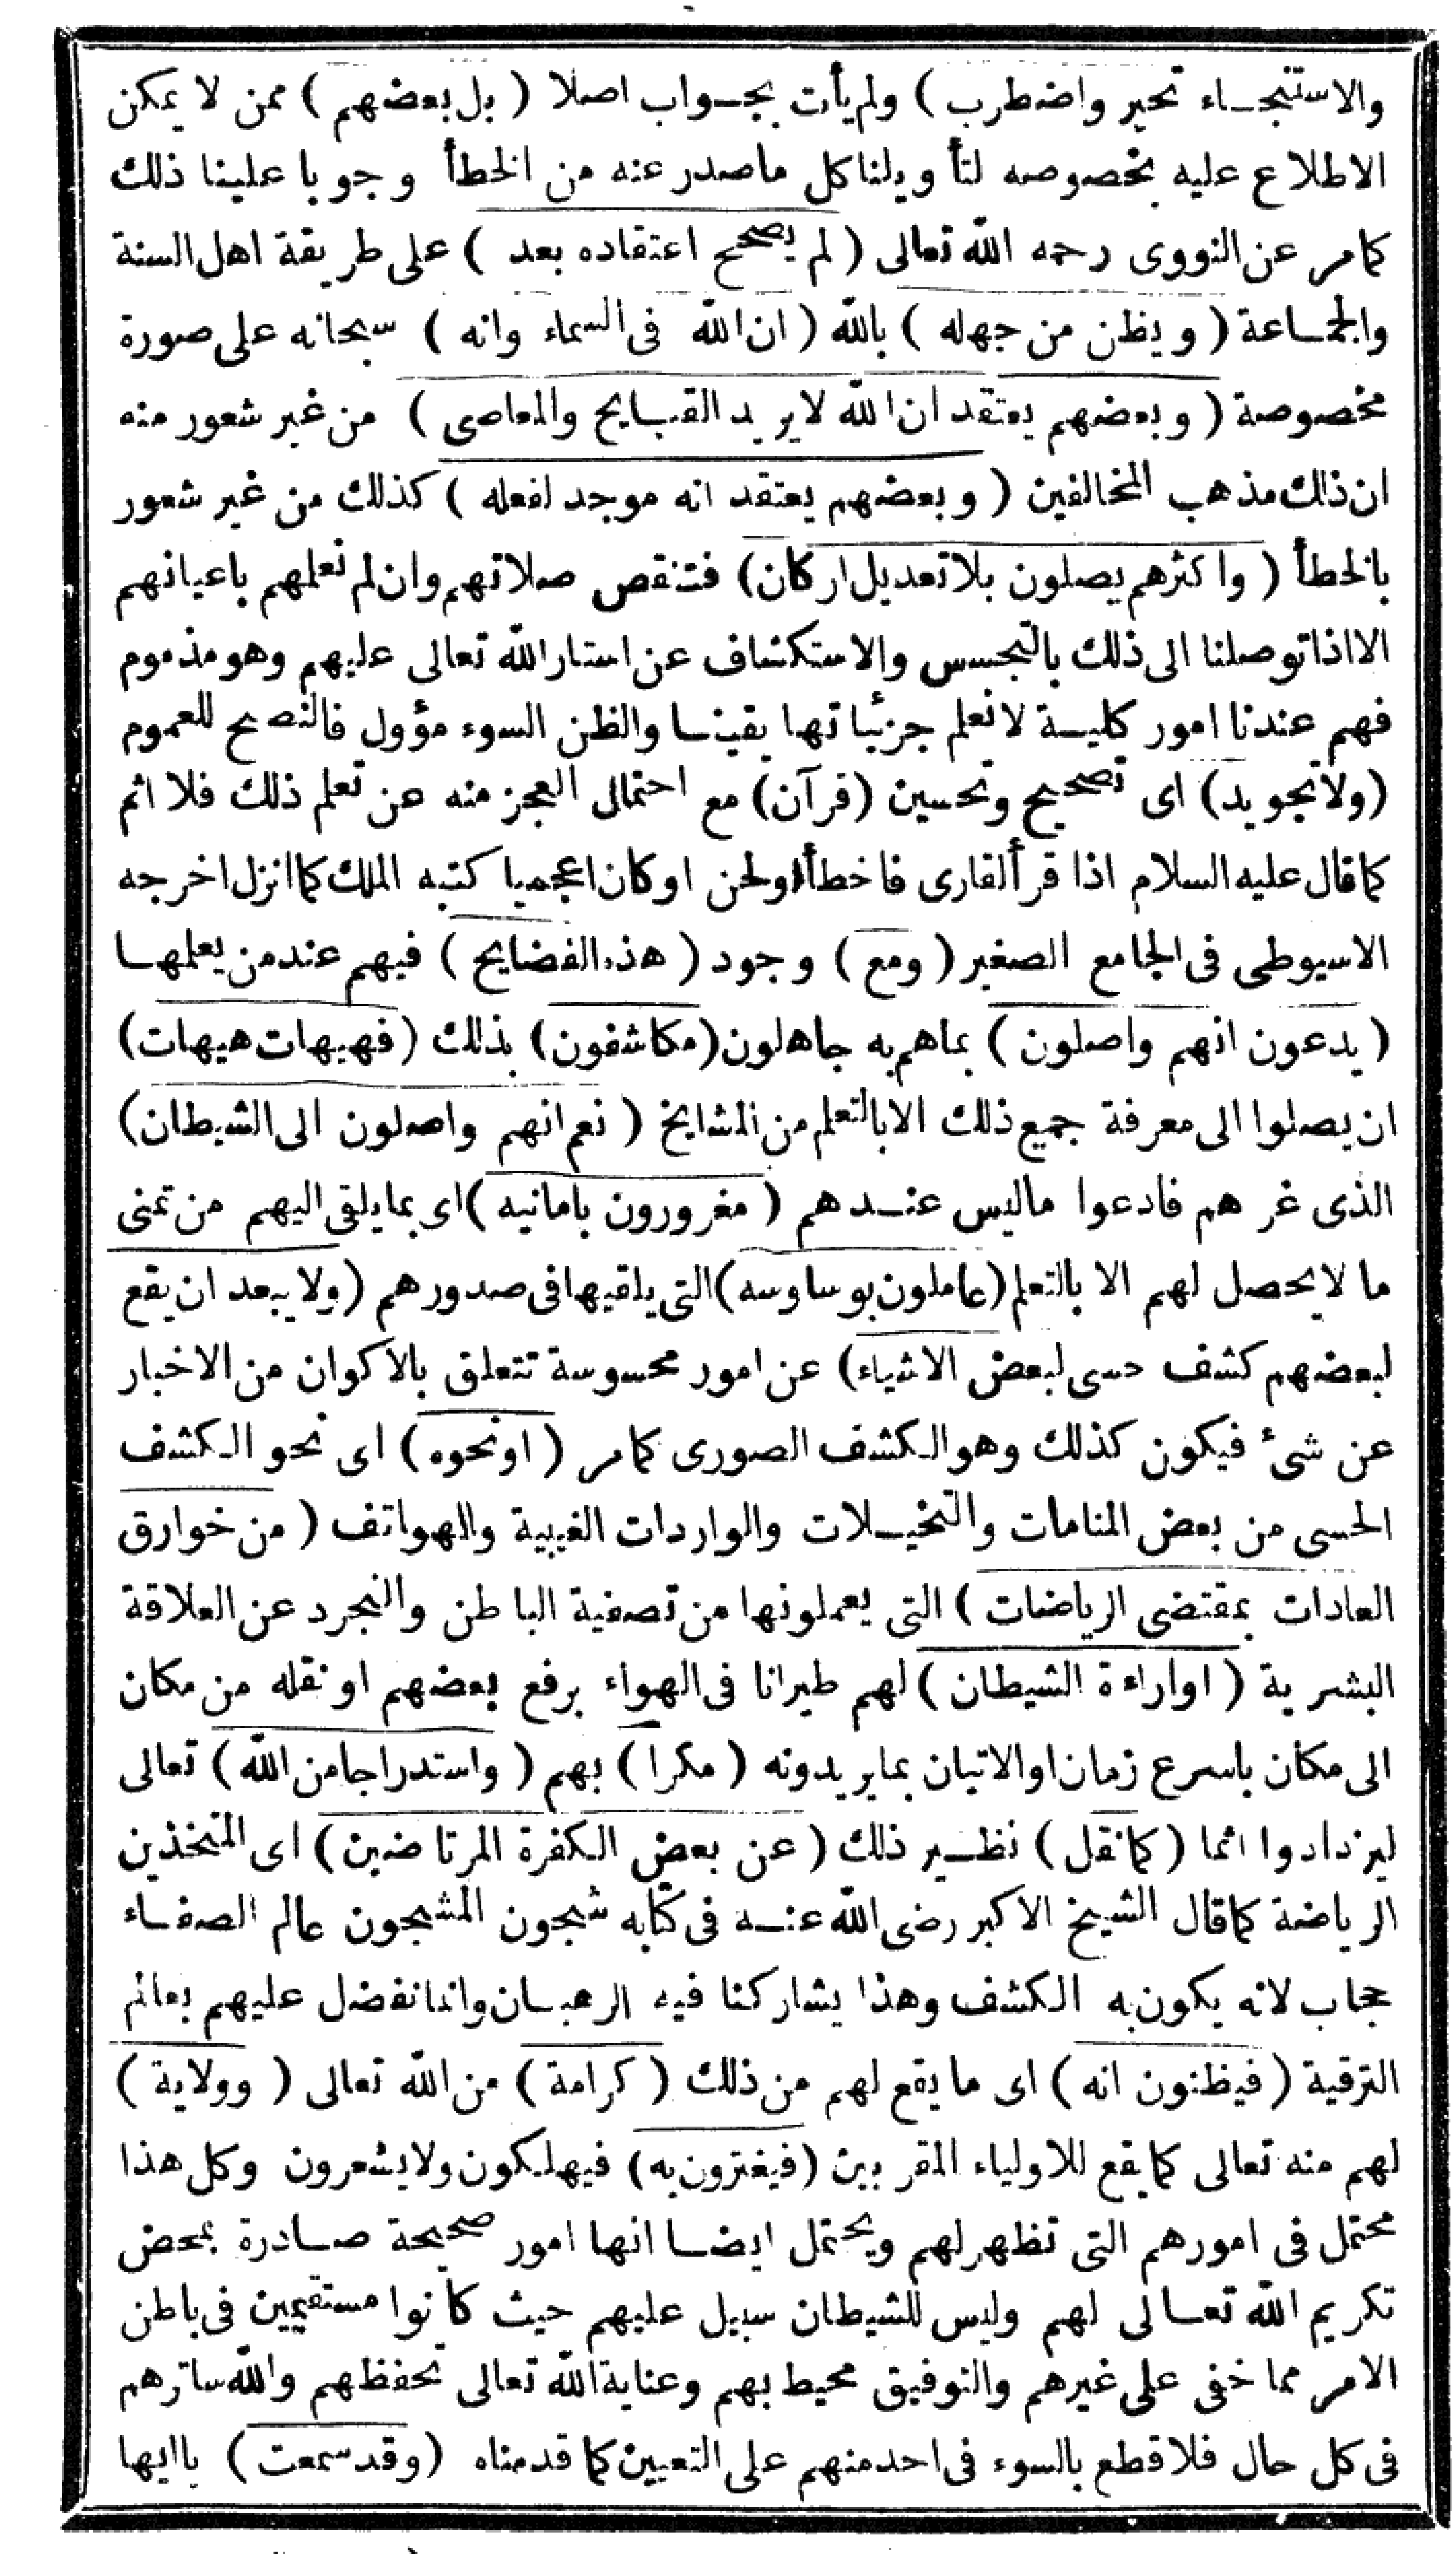 والاستنجاء تحير واضطرب ) ولم يأت بجواب اصلا ( بل بعضهم ) ممن لا يمكن
الاطلاع عليه بخصوصه لتأويلنا كل ماصدر عنه من الخطأ وجوبا علينا ذلك
كمامر عن النووى رحمه الله تعالى ( لم يصحح اعتقاده بعد ) على طريقة اهل السنة
والجماعة ( ويظن من جهله ) بالله ( ان الله فى السماء وانه ) سبحانه على صورة
مخصوصة ( وبعضهم يعتقد ان الله لا يريد القبايح والمعاصى ) من غير شعور منه
ان ذلك مذهب المخالفين ( وبعضهم يعتقد انه موجد لفعله ) كذلك من غير شعور
بالخطأ ( واكثرهم يصلون بلا تعديل اركان) فتنقص صلاتهم وان لم نعلمهم باعيانهم
الا اذا توصلنا الى ذلك بالتجسس والاستكشاف عن استار الله تعالى عليهم وهو مذموم
فهم عندنا امور كلية لا نعلم جزئياتها يقينا والظن السوء مؤول فالنصح للعموم
(ولا تجويد) اى تصحيح وتحسين (قرآن) مع احتمال العجز منه عن تعلم ذلك فلا اثم
كما قال عليه السلام اذا قرأ القارى فاخطأ اولحن اوكان اعجميا كتبه الملك كما انزل اخرجه
الاسيوطى فى الجامع الصغير ( ومع ) وجود ( هذه الفضايح ) فيهم عند من يعلمها
( يدعون انهم واصلون ) بماهم به جاهلون (مكاشفون) بذلك (فهيهات هيهات)
ان يصلوا الى معرفة جميع ذلك الا بالتعلم من المشايخ ( نعم انهم واصلون الى الشيطان)
الذى غرهم فادعوا ماليس عندهم ( مغرورون بامانيه ) اى بما يلقى اليهم من تمنى
ما لا يحصل لهم الا بالتعلم (عاملون بوساوسه) التى يلقيها فى صدورهم (ولا يبعد ان يقع
لبعضهم كشف حسى لبعض الاشياء) عن امور محسوسة تتعلق بالاكوان من الاخبار
عن شئ فيكون كذلك وهو الكشف الصورى كمامر ( اونحوه ) اى نحو الكشف
الحسى من بعض المنامات والتخيلات والواردات الغيبية والهواتف ( من خوارق
العادات بمقتضى الرياضات ) التى يعملونها من تصفية الباطن والتجرد عن العلاقة
البشرية ( اواراءة الشيطان ) لهم طيرانا فى الهواء برفع بعضهم اونقله من مكان
الى مكان باسرع زمان اوالاتيان بمايريدونه ( مكرا ) بهم ( واستدراجا من الله ) تعالى
ليزدادوا اثما ( كمانقل ) نظير ذلك ( عن بعض الكفرة المرتاضين ) اى المتخذين
الرياضة كما قال الشيخ الاكبر رضى الله عنه فى كتابه شجون المشجون عالم الصفاء
حجاب لانه يكون به الكشف وهذا يشاركنا فيه الرهبان وانما نفضل عليهم بعالم
الترقية ( فيظنون انه ) اى ما يقع لهم من ذلك ( كرامة ) من الله تعالى ( وولاية )
لهم منه تعالى كمايقع للاولياء المقربين ( فيغترون به ) فيهلكون ولا يشعرون وكل هذا
محتمل فى امورهم التى تظهر لهم ويحتمل ايضا انها امور صحيحة صادرة بمحض
تكريم الله تعالى لهم وليس للشيطان سبيل عليهم حيث كانوا مستقيمين فى باطن
الامر مما خفى على غيرهم والتوفيق محيط بهم وعناية الله تعالى تحفظهم والله ساترهم
فى كل حال فلا قطع بالسوء فى احد منهم على التعيين كما قدمناه ( وقد سمعت ) ياايها